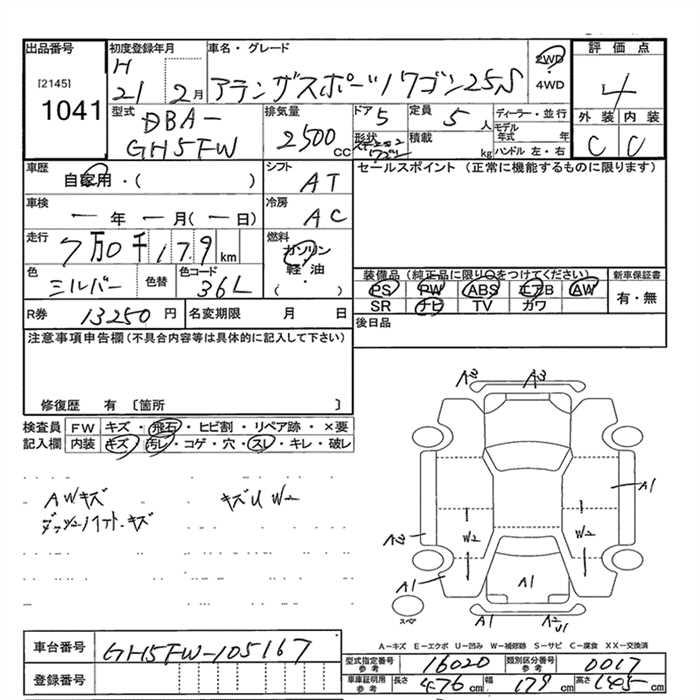 出品番号
[2145]
1041
初度登録年月
H
21 2月
車名・グレード
アテンザスポーツワゴン25S
2WD
4WD
評価点
4
外装 内装
C C
型式
DBA-
GH5FW
排気量
2500 CC
ドア 5
定員 5 人
形状
ステーション
ワゴン
積載 kg
ディーラー・並行
モデル年式 年
ハンドル 左・右
車歴
自家用・( )
シフト
AT
セールスポイント (正常に機能するものに限ります)
車検
ー年ー月(ー日)
冷房
AC
走行
7万0千179km
燃料
ガソリン
軽・油
( ・ )
色
シルバー
色替
色コード
36L
装備品 (純正品に限り○をつけてください)
PS PW ABS エアB AW
SR ナビ TV カワ
新車保証書
有・無
R券 13250 円
名変期限 月 日
後日品
注意事項申告欄 (不具合内容等は具体的に記入して下さい)
修復歴 有 〔箇所 〕
検査員
記入欄
FW キズ・飛石・ヒビ割・リペア跡・×要
内装 キズ・汚レ・コゲ・穴・スレ・キレ・破レ
AWキズ
キズU W2
A2 A3
A1
W2 W2
A2
A1
A1
スペア
A1 A2
U1
車台番号 GH5FW-105167
登録番号
A-キズ E-エクボ U-凹み W-補修跡 S-サビ C-腐食 XX-交換済
型式指定番号
参考
16020
類別区分番号
参考
0017
車庫証明用
参考
長さ 476 cm 幅 179 cm 高さ 145 cm